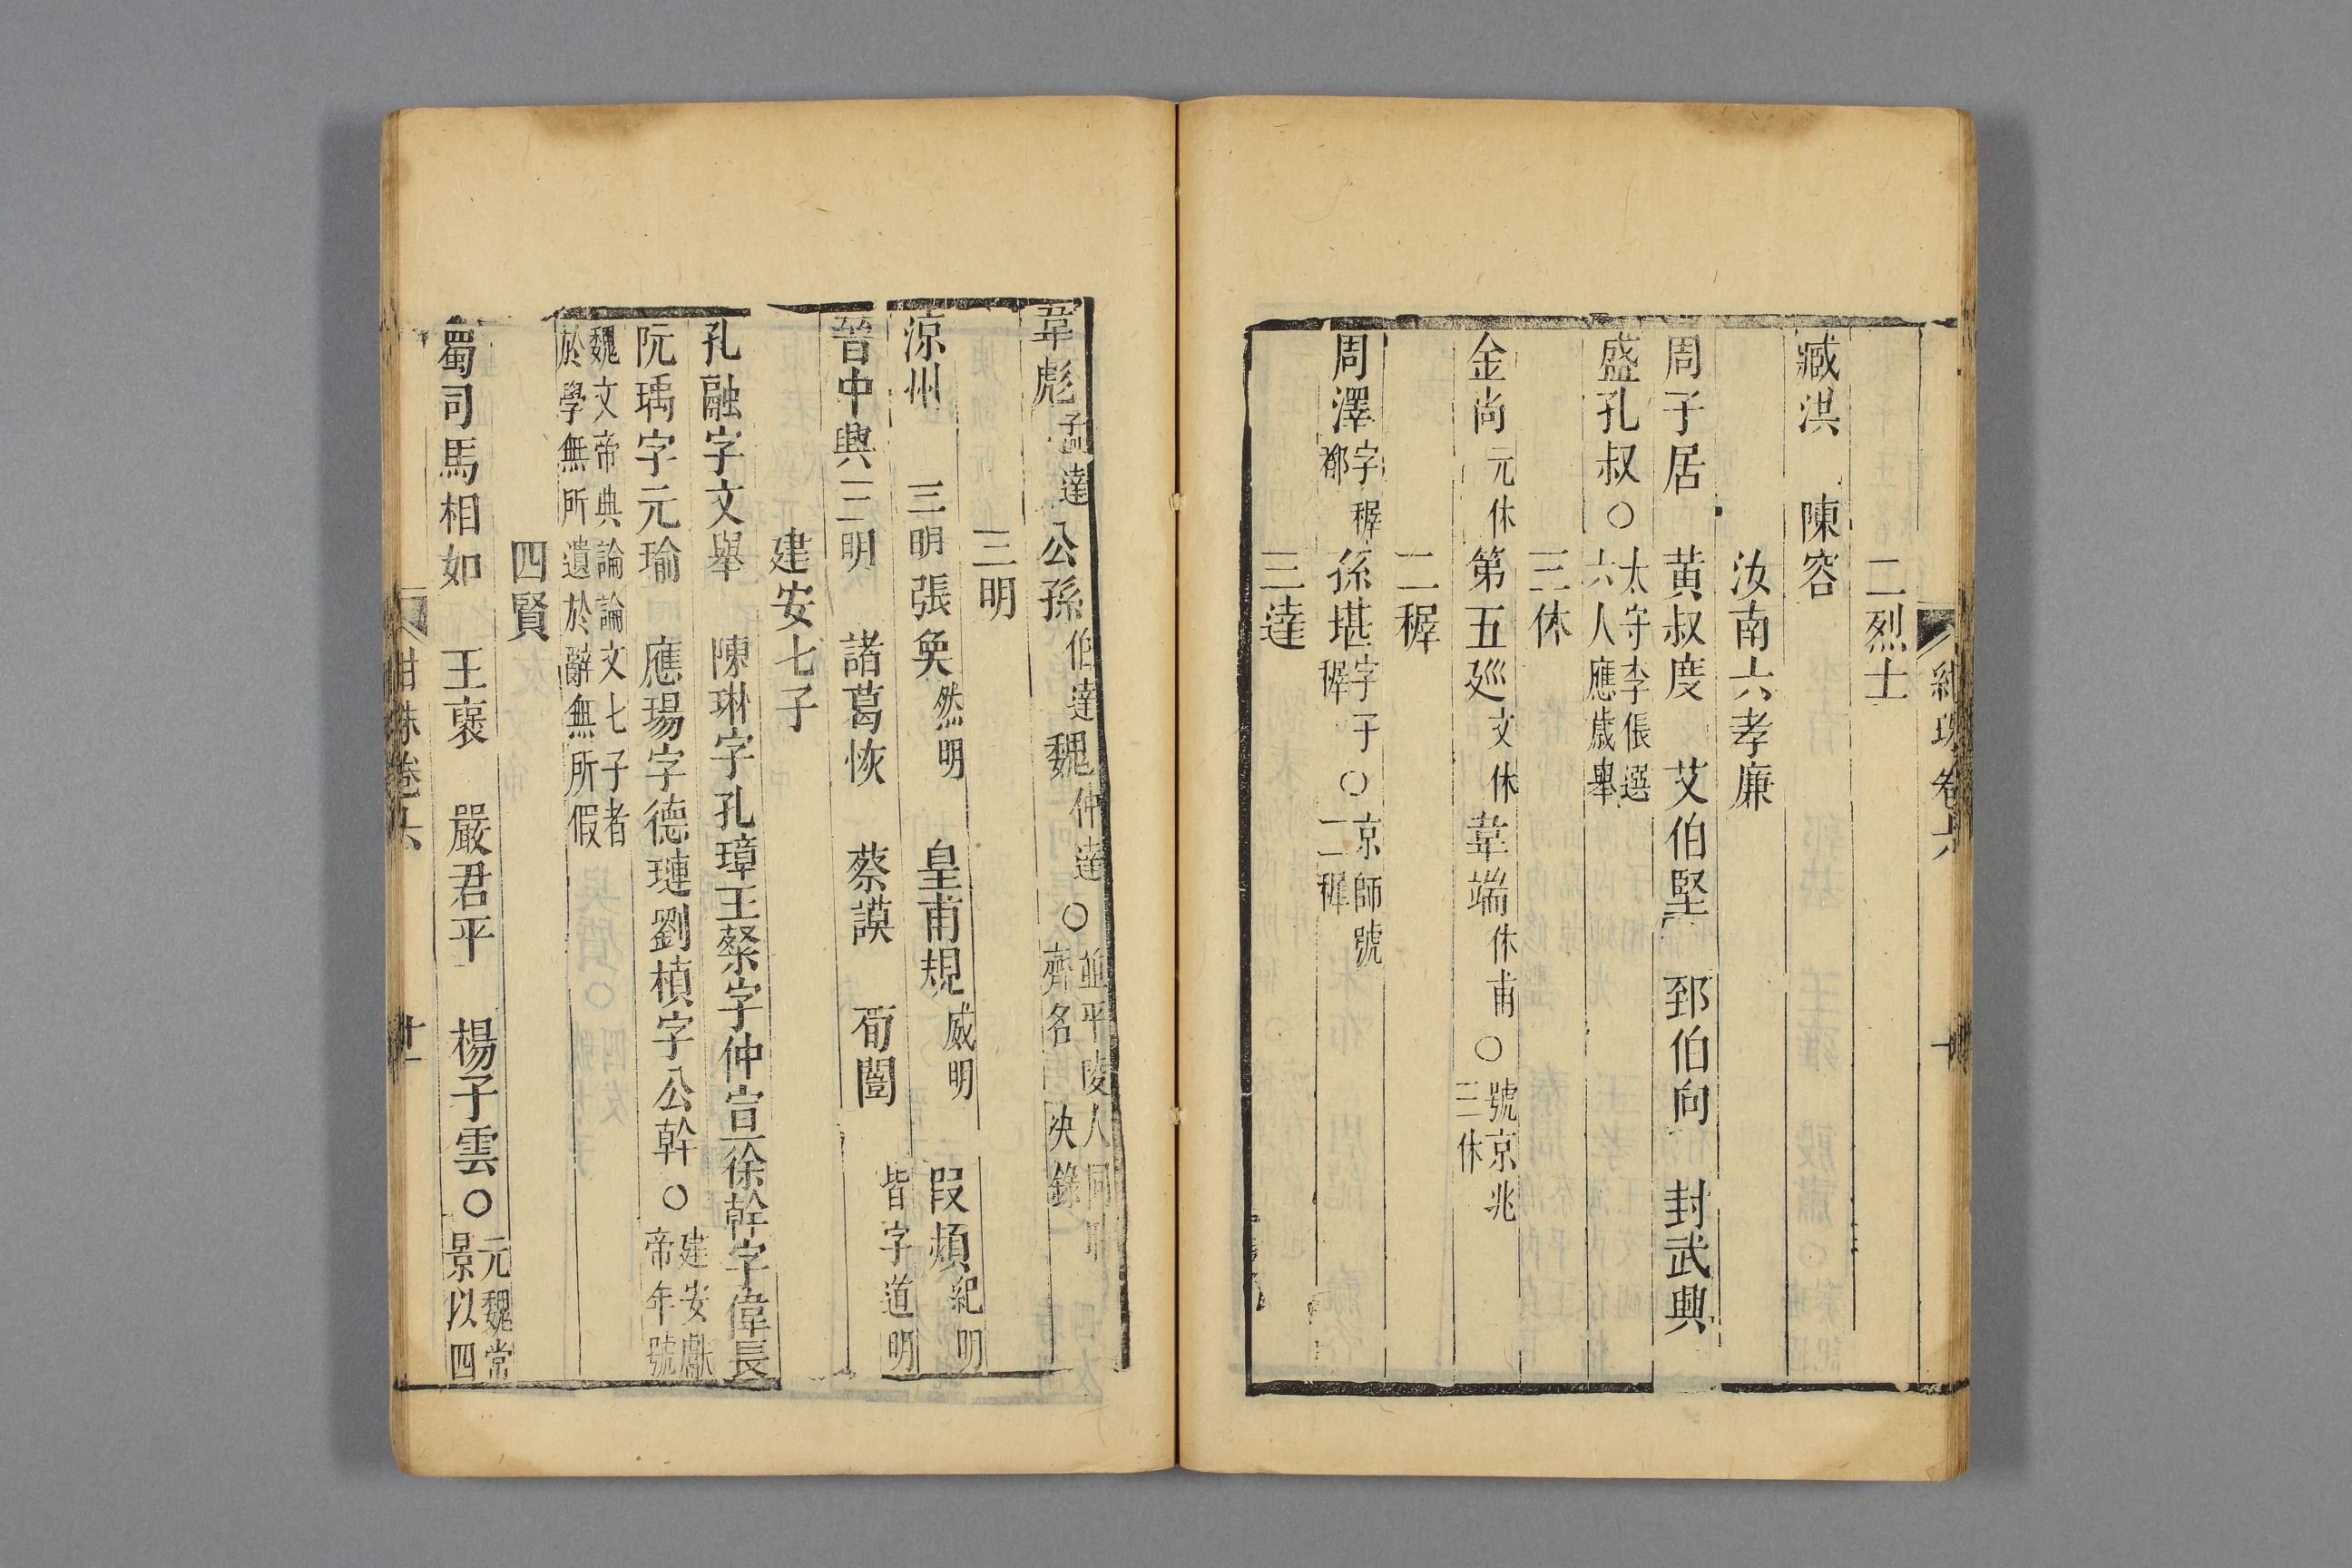 二烈士
臧洪　陳容
汝南六孝廉
周子居　黄叔度　艾伯堅　郅伯向　封武興
盛孔叔○太守李倀選六人應歲舉
三休
金尚元休第五廵文休韋端休甫○號京兆三休
二稺
周澤字稺都孫堪字子稺○京師號二稺
三達
韋彪孟達公孫伯達魏仲達○並平陵人同齊名決錄
三明
涼州三明張奐然明　皇甫規威明　段熲紀明
晉中興三明　諸葛恢　蔡謨　荀闓　皆字道明
建安七子
孔融字文舉　陳琳字孔璋王粲字仲宣徐幹字偉長
阮瑀字元瑜　應瑒字德璉劉楨字公幹○建安獻帝年號
魏文帝典論論文七子者於學無所遺於辭無所假
四賢
蜀司馬相如　王褒　嚴君平　楊子雲○元魏常景以四